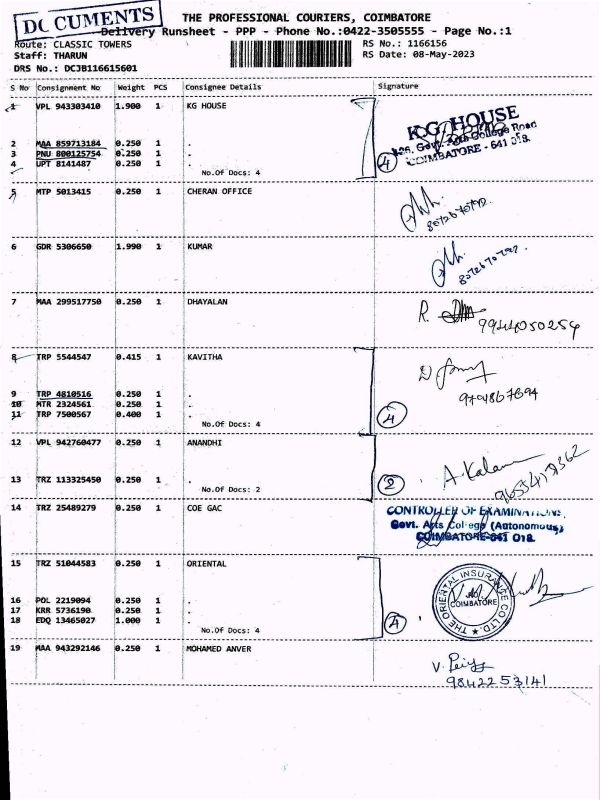 DOCUMENTS
THE PROFESSIONAL COURIERS, COIMBATORE
Delivery Runsheet - PPP - Phone No.:0422-3505555 - Page No.:1
Route: CLASSIC TOWERS RS No.: 1166156
Staff: THARUN RS Date: 08-May-2023
DRS No.: DCJB116615601
S No Consignment No Weight PCS Consignee Details Signature
1 VPL 943303410 1.900 1 KG HOUSE
K.G. HOUSE
Govt. Arts College Road
COIMBATORE - 641 018.
2 MAA 859713184 0.250 1 .
3 PNU 800125754 0.250 1 .
4 UPT 8141487 0.250 1 .
No.Of Docs: 4 4
5 MTP 5013415 0.250 1 CHERAN OFFICE
6 GDR 5306650 1.990 1 KUMAR
7 MAA 299517750 0.250 1 DHAYALAN
R.
9944050254
8 TRP 5544547 0.415 1 KAVITHA
9 TRP 4810516 0.250 1 .
10 MTR 2324561 0.250 1 .
11 TRP 7500567 0.400 1 .
No.Of Docs: 4 4
12 VPL 942760477 0.250 1 ANANDHI
13 TRZ 113325450 0.250 1 .
No.Of Docs: 2 2
14 TRZ 25489279 0.250 1 COE GAC
CONTROLLER OF EXAMINATIONS,
Govt. Arts College (Autonomous)
COIMBATORE-641 018.
15 TRZ 51044583 0.250 1 ORIENTAL
THE ORIENTAL INSURANCE CO LTD.
COIMBATORE
16 POL 2219094 0.250 1 .
17 KRR 5736190 0.250 1 .
18 EDQ 13465027 1.000 1 .
No.Of Docs: 4 4
19 MAA 943292146 0.250 1 MOHAMED ANVER
9842253141